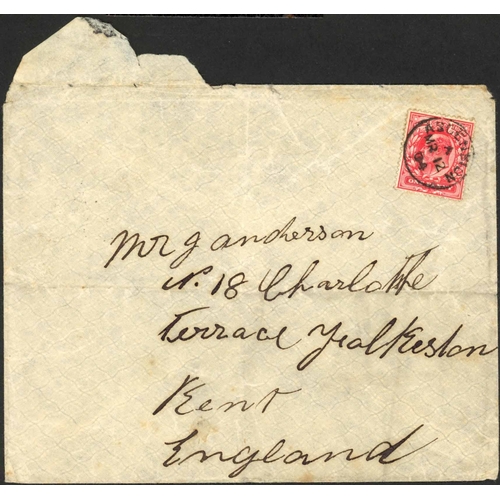 ASCENSION
Mr J Anderson
N. 18 Charlotte
Terrace Fealkeston
Kent
England